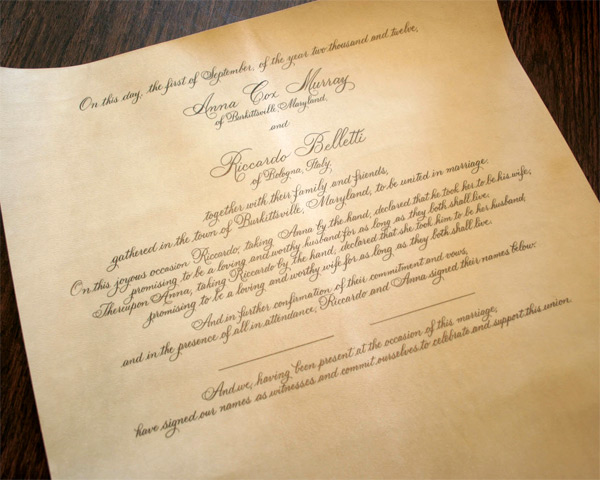 On this day, the first of September, of the year two thousand and twelve,
Anna Cox Murray
of Burkittsville, Maryland,
and
Riccardo Belletti
of Bologna, Italy,
together with their family and friends,
gathered in the town of Burkittsville, Maryland, to be united in marriage.
On this joyous occasion Riccardo, taking Anna by the hand, declared that he took her to be his wife,
promising to be a loving and worthy husband for as long as they both shall live.
Thereupon Anna, taking Riccardo by the hand, declared that she took him to be her husband,
promising to be a loving and worthy wife for as long as they both shall live.
And in further confirmation of their commitment and vows,
and in the presence of all in attendance, Riccardo and Anna signed their names below:
And we, having been present at the occasion of this marriage,
have signed our names as witnesses and commit ourselves to celebrate and support this union.